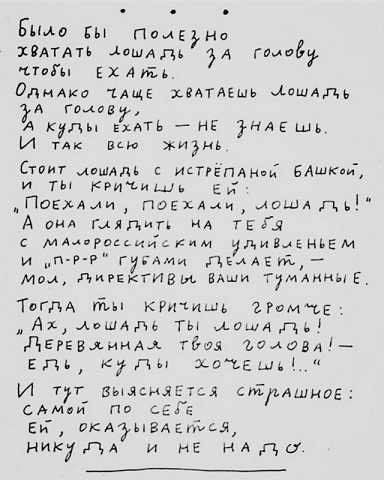 • • •
Было бы полезно
хватать лошадь за голову
чтобы ехать.
Однако чаще хватаешь лошадь
за голову,
А куды ехать — не знаешь.
И так всю жизнь.
Стоит лошадь с истрёпаной башкой,
и ты кричишь ей:
"Поехали, поехали, лошадь!"
А она глядить на тебя
с малороссийским удивленьем
и "п-р-р" губами делает, —
мол, директивы ваши туманные.
Тогда ты кричишь громче:
"Ах, лошадь ты лошадь!
Деревянная твоя голова! —
Едь, куды хочешь!.."
И тут выясняется страшное:
самой по себе
ей, оказывается,
никуда и не надо.